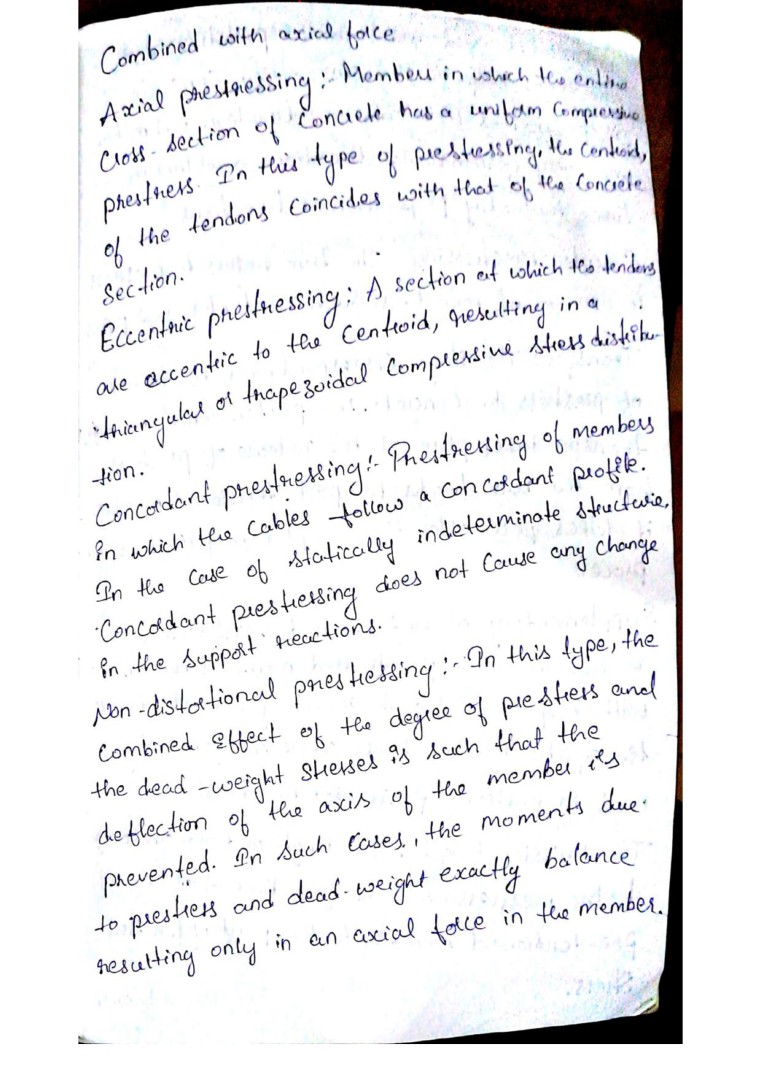 Combined with axial force
Axial prestressing :- Members in which the entire
Cross-section of Concrete has a uniform Compressive
prestress. In this type of prestressing, the Centroid,
of the tendons Coincides with that of the Concrete
Section.
Eccentric prestressing : A section at which the tendons
are eccentric to the Centroid, resulting in a
triangular or trapezoidal Compressive stress distribu-
tion.
Concordant prestressing :- Prestressing of members
in which the cables follow a concordant profile.
In the case of statically indeterminate structure,
Concordant prestressing does not Cause any change
in the support reactions.
Non-distortional prestressing :- In this type, the
Combined Effect of the degree of prestress and
the dead-weight stresses is such that the
deflection of the axis of the member is
prevented. In such Cases, the moments due
to prestress and dead-weight exactly balance
resulting only in an axial force in the member.